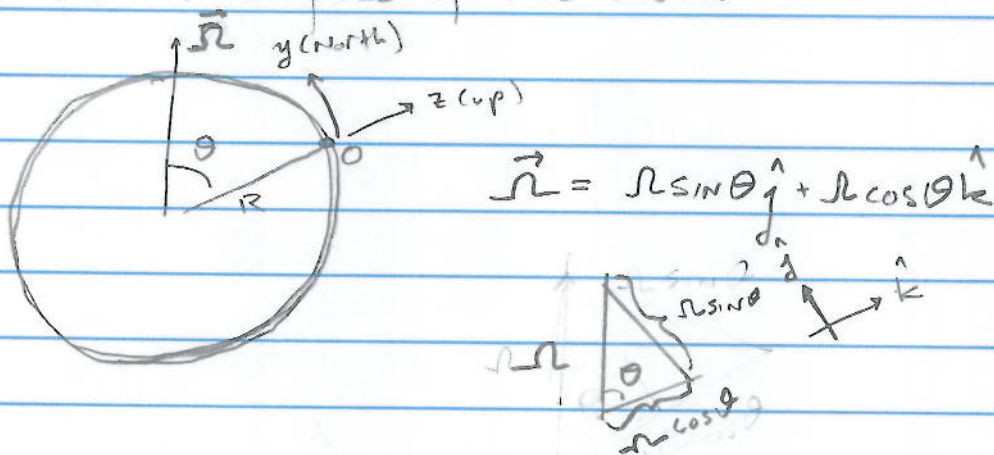 Ω⃗
y (North)
z (up)
θ
O
R
Ω⃗ = Ω SIN θ ĵ + Ω cos θ k̂
Ω sin θ
ĵ
k̂
Ω
θ
Ω cos θ